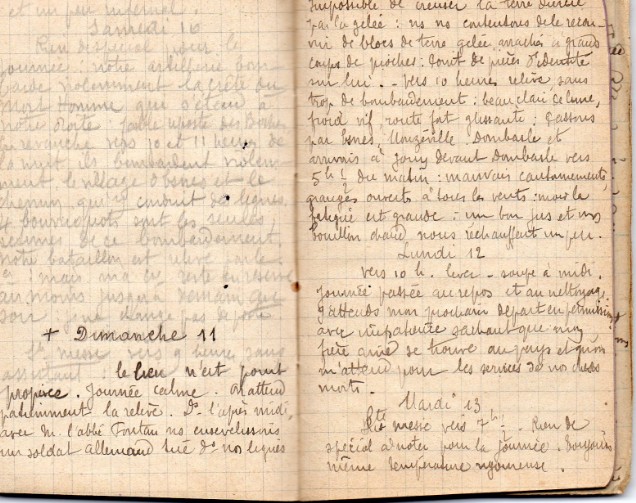 et un peu infernal.
Samedi 10
Rien de spécial pour la
journée : notre artillerie bom-
barde violemment la crête du
Mort Homme qui s'étend à
notre droite : faible riposte des Boches
en revanche vers 10 et 11 heures de
la nuit ils bombardent violem-
ment le village d'Esnes et le
chemin qui conduit lignes.
4 bourriquots sont les seules
victimes de ce bombardement.
Notre bataillon est relevé
mais ma Cie reste en réserve
au moins jusqu'à demain
soir : je ne change pas de poste
+ Dimanche 11
Ste messe vers 9 heures sans
assistant : le lieu n'est point
propice. Journée calme. On attend
patiemment la relève. Ds l'après midi,
avec M. l'abbé Fontan ns ensevelissons
un soldat allemand tué ds nos lignes
impossible de creuser la terre durcie
par la gelée : ns ns contentons de le recou-
vrir de blocs de terre gelée, arrachés à grand
coups de pioches : point de pièces d'identité
sur lui. - Vers 10 heures relève, sans
trop de bombardement : beau clair de lune,
froid vif, route fort glissante : passons
par Esnes, Dombasle et
arrivons à Jouy devant Dombasle vers
5h ½ du matin : mauvais cantonnements,
granges ouverts à tous les vents :
fatigue est grande : un bon jus et un
bouillon chaud nous réchauffent un peu.
Lundi 12
Vers 10 h. lever - soupe à midi.
Journée passée au repos et au nettoyage,
j'attends mon prochain départ en permission
avec impatience sachant que mon
frère aîné se trouve au pays et qu'on
m'attend pour les services de nos chers
morts.
Mardi 13
Ste messe vers 7h. Rien de
spécial à noter pour la journée. Toujours
même température rigoureuse.